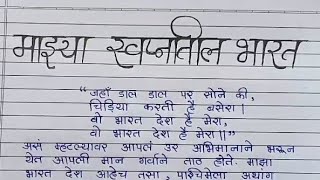 माझ्या स्वप्नातील भारत
“जहाँ डाल डाल पर सोने की,
चिड़िया करती है बसेरा।
वो भारत देश है मेरा,
वो भारत देश है मेरा॥”
असं म्हटल्यावर आपलं उर अभिमानाने भरून
येत आपली मान गर्वाने ताठ होते. माझा
भारत देश आहेच तसा, पश्चिमेला अथांग